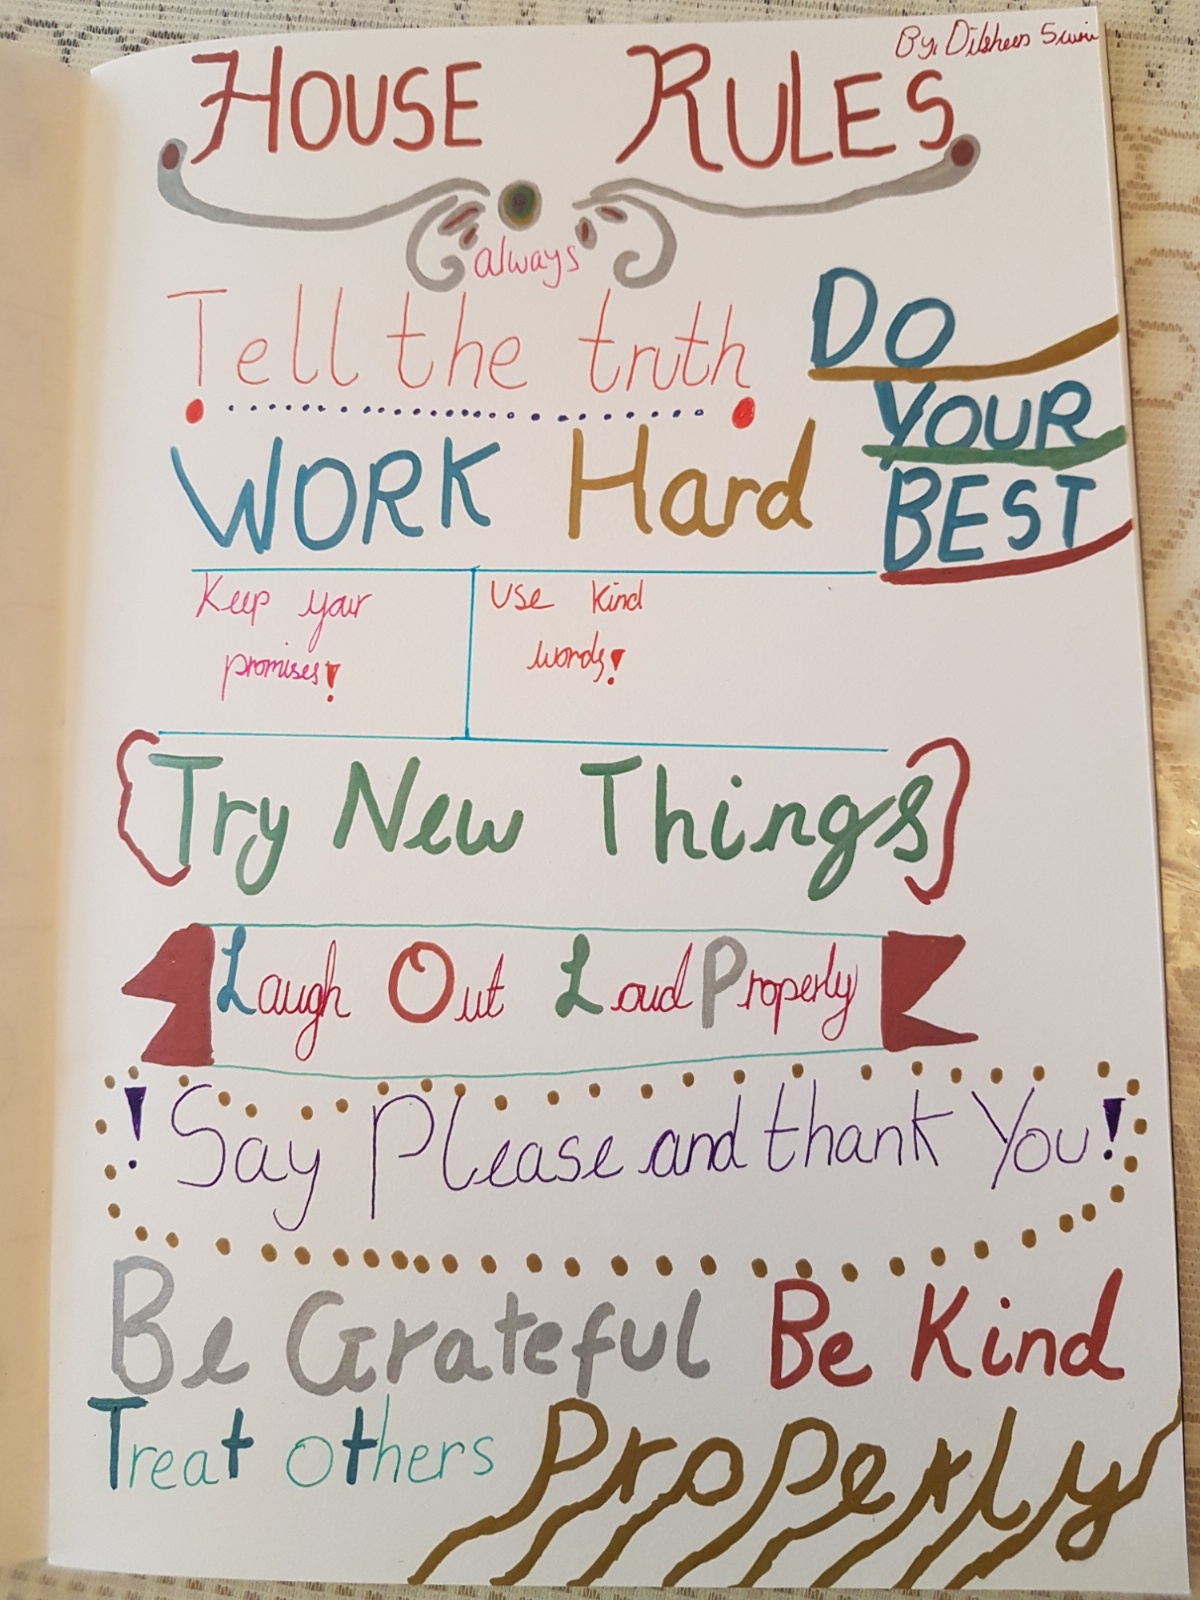 By: Dilsheen
HOUSE RULES
always
Tell the truth
DO
YOUR
BEST
WORK Hard
Keep your
promises!
Use Kind
words!
Try New Things
Laugh Out Loud Properly
! Say Please and thank You!
Be Grateful Be Kind
Treat others Properly